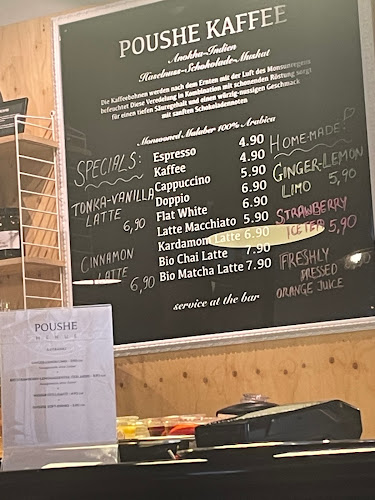 POUSHE KAFFEE
Anokha-Indien
Haselnuss-Schokolade-Muskat
Die Kaffeebohnen werden nach dem Ernten mit der Luft des Monsunregens
befeuchtet Diese Veredelung in Kombination mit schonenden Röstung sorgt
für einen tiefen Säuregehalt und einen würzig-nussigen Geschmack
mit sanften Schokoladennoten
Monsooned Malabar 100% Arabica
Espresso 4.90
Kaffee 4.90
Cappuccino 5.90
Doppio 6.90
Flat White 6.90
Latte Macchiato 5.90
Kardamom Latte 6.90
Bio Chai Latte 7.90
Bio Matcha Latte 7.90
service at the bar
SPECIALS:
TONKA-VANILLA
LATTE
6,90
CINNAMON
LATTE
6,90
HOME-MADE:
GINGER-LEMON
LIMO 5,90
STRAWBERRY
ICE TEA 5,90
FRESHLY
PRESSED
ORANGE JUICE
POUSHE
MENUS